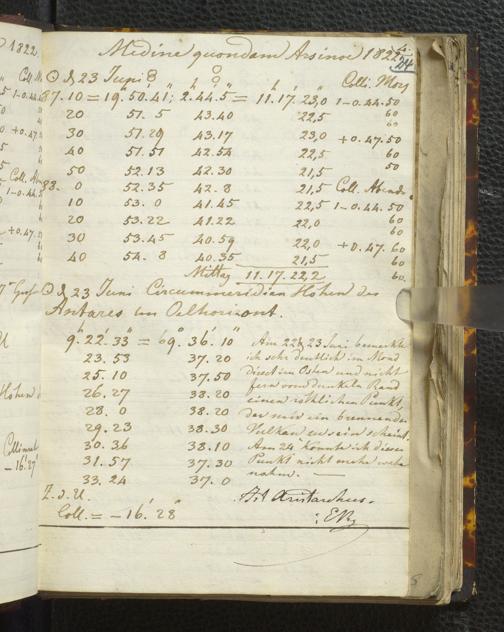 Medine quondam Arsinoe 1822.
24
☉ d 23 Juni 8 ♀ Coll. Mory
87.10 = 19°.50.41; 2.44.5 = 11.17.23,0 1-0.44.50
20 51.5 43.40 22,5 60
60
30 51.29 43.17 23,0 +0.47.50
40 51.51 42.54 22,5 60
50 52.13 42.30 21,5 50
88. 0 52.35 42.8 21,5 Coll. Abends
10 53.0 41.45 22,5 1-0.44.50
20 53.22 41.22 22,0 60
60
30 53.45 40.59 22,0 +0.47.60
40 54.8 40.35 21,5 60
Mittag 11.17.22,2 60
☉ d 23 Juni Circummeridian Höhen des
Antares im Oelhorizont.
9.22.33" = 69°.36.10"
23.53 37.20
25.10 37.50
26.27 38.20
28.0 38.20
29.23 38.30
30.36 38.10
31.57 37.30
33.24 37.0
Z.d.U.
Coll. = -16'.28"
Am 22 & 23 Juni bemerkte
ich sehr deutlich im Mond
Direct im Osten und nicht
fern vom dunkeln Rand
einen röthlichen Punkt,
der mir ein brennender
Vulkan zu sein scheint.
Am 24 konnte ich diesen
Punkt nicht mehr wahr
nehmen.
Aristarchus.